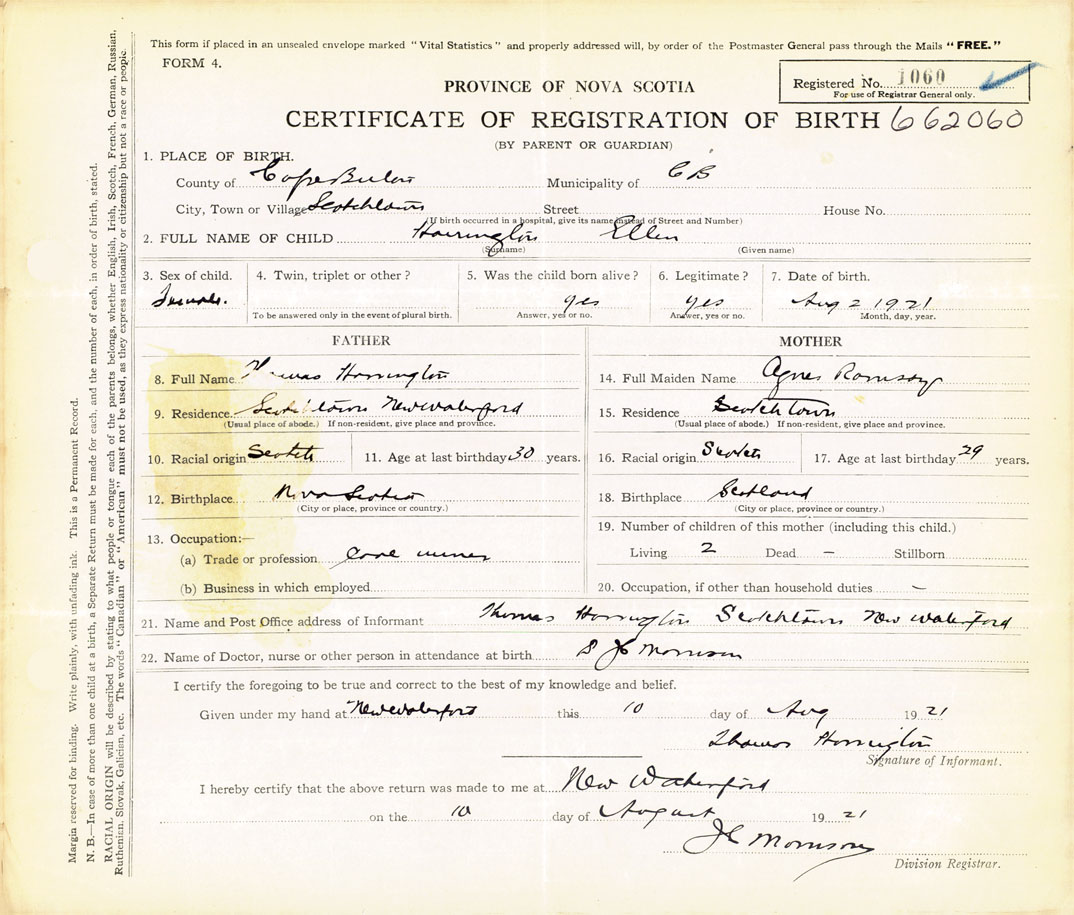 This form if placed in an unsealed envelope marked "Vital Statistics" and properly addressed will, by order of the Postmaster General pass through the Mails "FREE."
FORM 4.
Registered No. 1060
For use of Registrar General only.
PROVINCE OF NOVA SCOTIA
CERTIFICATE OF REGISTRATION OF BIRTH 662060
(BY PARENT OR GUARDIAN)
1. PLACE OF BIRTH.
County of Cape Breton Municipality of C B
City, Town or Village Scotchtown Street House No.
(If birth occurred in a hospital, give its name instead of Street and Number)
2. FULL NAME OF CHILD Harrington Ellen
(Surname) (Given name)
3. Sex of child. 4. Twin, triplet or other? 5. Was the child born alive? 6. Legitimate? 7. Date of birth.
Female. yes yes Aug 2 1921
To be answered only in the event of plural birth. Answer, yes or no. Answer, yes or no. Month, day, year.
FATHER
8. Full Name Thomas Harrington
9. Residence Scotchtown New Waterford
(Usual place of abode.) If non-resident, give place and province.
10. Racial origin Scotch 11. Age at last birthday 30 years.
12. Birthplace Nova Scotia
(City or place, province or country.)
13. Occupation:—
(a) Trade or profession Coal miner
(b) Business in which employed
MOTHER
14. Full Maiden Name Agnes Ramsay
15. Residence Scotchtown
(Usual place of abode.) If non-resident, give place and province.
16. Racial origin Scotch 17. Age at last birthday 29 years.
18. Birthplace Scotland
(City or place, province or country.)
19. Number of children of this mother (including this child.)
Living 2 Dead – Stillborn
20. Occupation, if other than household duties –
21. Name and Post Office address of Informant Thomas Harrington Scotchtown New Waterford
22. Name of Doctor, nurse or other person in attendance at birth Morrison
I certify the foregoing to be true and correct to the best of my knowledge and belief.
Given under my hand at New Waterford this 10 day of Aug 1921
Thomas Harrington
Signature of Informant.
I hereby certify that the above return was made to me at New Waterford
on the 10 day of August 1921
Morrison
Division Registrar.
Margin reserved for binding. Write plainly, with unfading ink. This is a Permanent Record.
N. B.—In case of more than one child at a birth, a Separate Return must be made for each, and the number of each, in order of birth, stated.
RACIAL ORIGIN will be described by stating to what people or tongue each of the parents belongs, whether English, Irish, Scotch, French, German, Russian,
Ruthenian, Slovak, Galician, etc. The words "Canadian" or "American" must not be used, as they express nationality or citizenship but not a race or people.